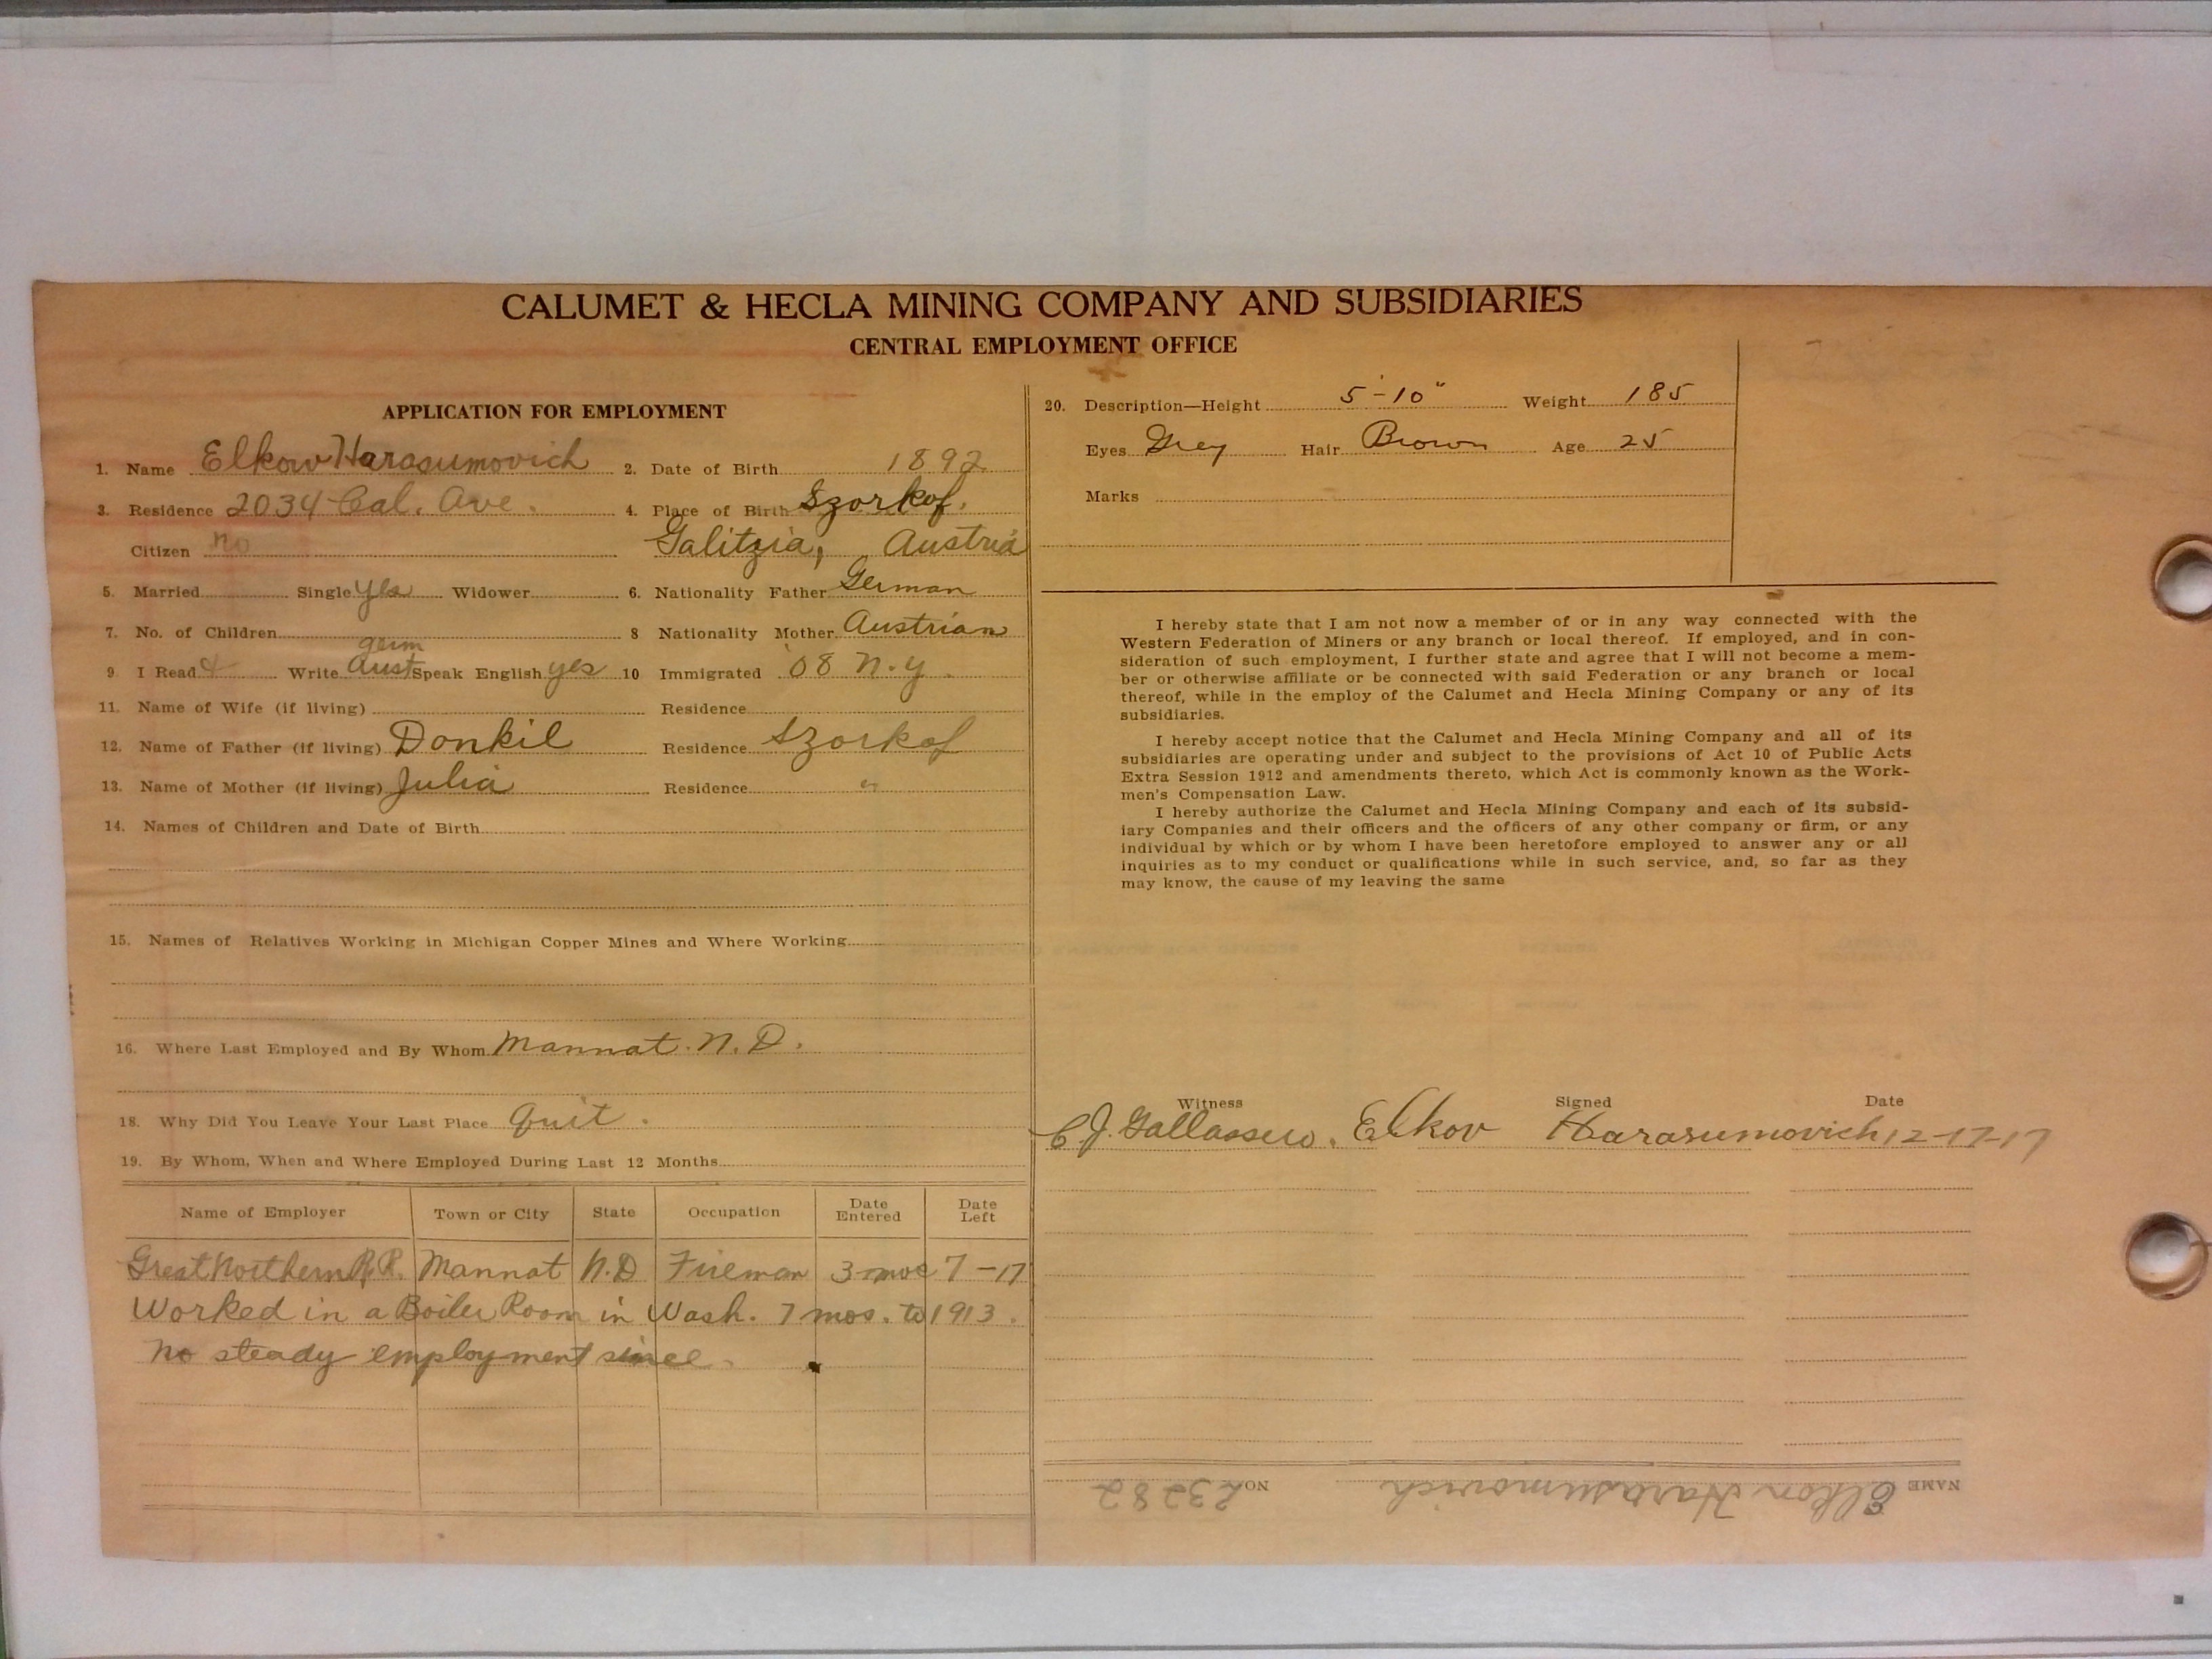 CALUMET & HECLA MINING COMPANY AND SUBSIDIARIES
CENTRAL EMPLOYMENT OFFICE
APPLICATION FOR EMPLOYMENT
1. Name Elkow Harasumovich 2. Date of Birth 1892
3. Residence 2034 Cal. Ave. 4. Place of Birth Szorkof,
Citizen no Galitzia, Austria
5. Married Single yes Widower 6. Nationality Father German
7. No. of Children 8 Nationality Mother Austrian
germ
9. I Read & Write Aust Speak English yes 10 Immigrated '08 N.Y.
11. Name of Wife (if living) Residence
12. Name of Father (if living) Donkil Residence Szorkof
13. Name of Mother (if living) Julia Residence "
14. Names of Children and Date of Birth
15. Names of Relatives Working in Michigan Copper Mines and Where Working
16. Where Last Employed and By Whom Mannat. N.D.
18. Why Did You Leave Your Last Place Quit.
19. By Whom, When and Where Employed During Last 12 Months
Name of Employer Town or City State Occupation Date Entered Date Left
Great Northern R.R. Mannat N.D Fireman 3 mos 7-17
Worked in a Boiler Room in Wash. 7 mos. to 1913.
No steady employment since.
20. Description—Height 5'-10" Weight 185
Eyes Grey Hair Brown Age 25
Marks
I hereby state that I am not now a member of or in any way connected with the
Western Federation of Miners or any branch or local thereof. If employed, and in con-
sideration of such employment, I further state and agree that I will not become a mem-
ber or otherwise affiliate or be connected with said Federation or any branch or local
thereof, while in the employ of the Calumet and Hecla Mining Company or any of its
subsidiaries.
I hereby accept notice that the Calumet and Hecla Mining Company and all of its
subsidiaries are operating under and subject to the provisions of Act 10 of Public Acts
Extra Session 1912 and amendments thereto, which Act is commonly known as the Work-
men's Compensation Law.
I hereby authorize the Calumet and Hecla Mining Company and each of its subsid-
iary Companies and their officers and the officers of any other company or firm, or any
individual by which or by whom I have been heretofore employed to answer any or all
inquiries as to my conduct or qualifications while in such service, and, so far as they
may know, the cause of my leaving the same
Witness Signed Date
C. J. Elkov Harasumovich 12-17-17
NAME Elkon Harasumovich NO. 23282